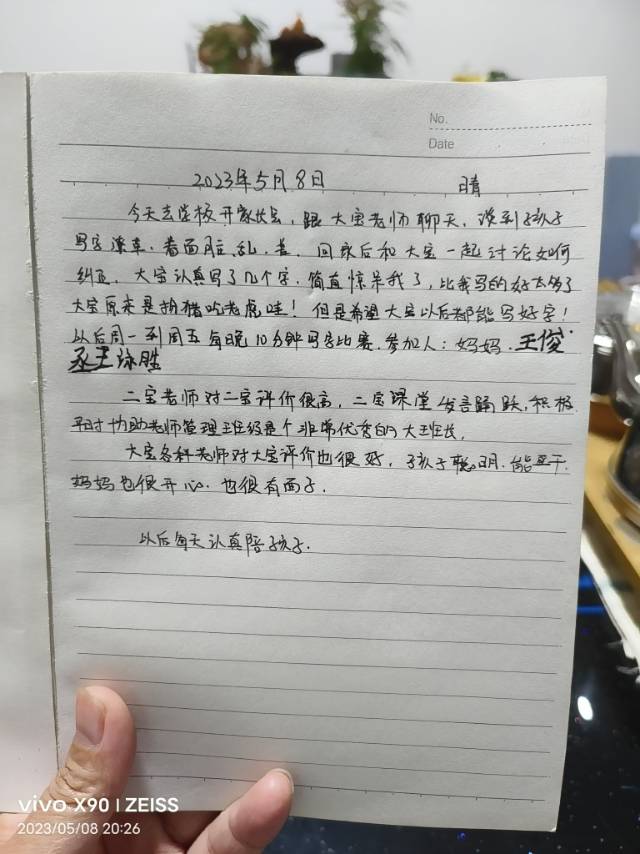 No.
Date
2023年5月8日 晴
今天去学校开家长会，跟大宝老师聊天，谈到孩子
写字潦草，卷面脏、乱、差。回家后和大宝一起讨论如何
纠正，大宝认真写了几个字，简直惊呆我了，比我写的好太多了
大宝原来是扮猪吃老虎哇！但是希望大宝以后都能写好字！
以后周一到周五每晚10分钟写字比赛，参加人：妈妈．王俊
王泳胜
二宝老师对二宝评价很高，二宝课堂发言踊跃，积极
平时协助老师管理班级是个非常优秀的大班长。
大宝各科老师对大宝评价也很好，孩子聪明．能
妈妈也很开心．也很有面子．
以后每天认真陪孩子．
vivo X90 | ZEISS
2023/05/08 20:26